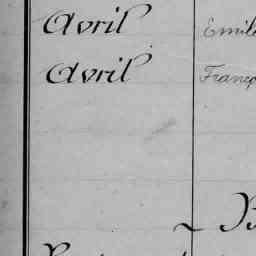 Avril Emile
Avril Franç
~ B